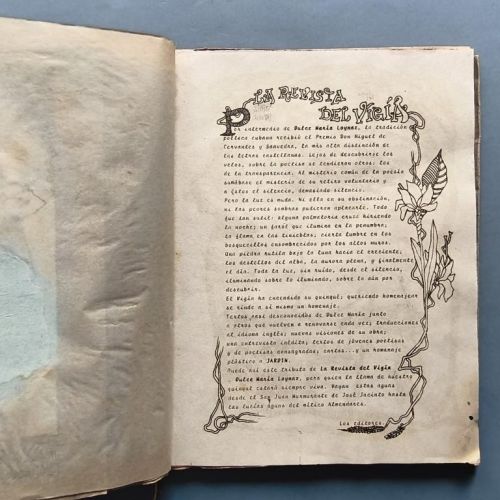 LA REVISTA
DEL VIGÍA
Por intermedio de Dulce María Loynaz, la tradición
poética cubana recibió el Premio Don Miguel de
Cervantes y Saavedra, la más alta distinción de
las letras castellanas. Lejos de descubrirse los
velos, sobre la poetisa se tendieron otros: los
de la transparencia. Al misterio común de la poesía
sumábase el misterio de su retiro voluntario y
a fatos el silencio, demasiado silencio.
Pero la luz es muda. Ni ella en su obstinación,
ni las peores sombras pudieron aplacarla. Todo
fue tan sutil: alguna palmatoria cruzó hiriendo
la noche; un farol que ilumina en la penumbra;
la flama en las tinieblas; cierta lumbre en los
bosquecillos ensombrecidos por los altos muros.
Una piedra rutila bajo la luna hacia el creciente;
los destellos del alba, la aurora plena, y finalmente
el día. Toda la luz, sin ruido, desde el silencio,
iluminando sobre lo iluminado, sobre lo aún por
descubrir.
El Vigía ha encendido su quinqué; queriendo homenajear
se rinde a sí mismo un homenaje.
Textos casi desconocidos de Dulce María junto
a otros que vuelven a renovarse cada vez; traducciones
al idioma inglés; nuevas visiones de su obra;
una entrevista inédita; textos de jóvenes poetisas
y de poetisas consagradas; cartas...y un homenaje
plástico a JARDIN.
Quede así este tributo de La Revista del Vigía
a Dulce María Loynaz, para quien la llama de nuestro
quinqué estará siempre viva. Vayan estas aguas
desde el San Juan Murmurante de José Jacinto hasta
las lucias aguas del mítico Almendares.
Los editores.